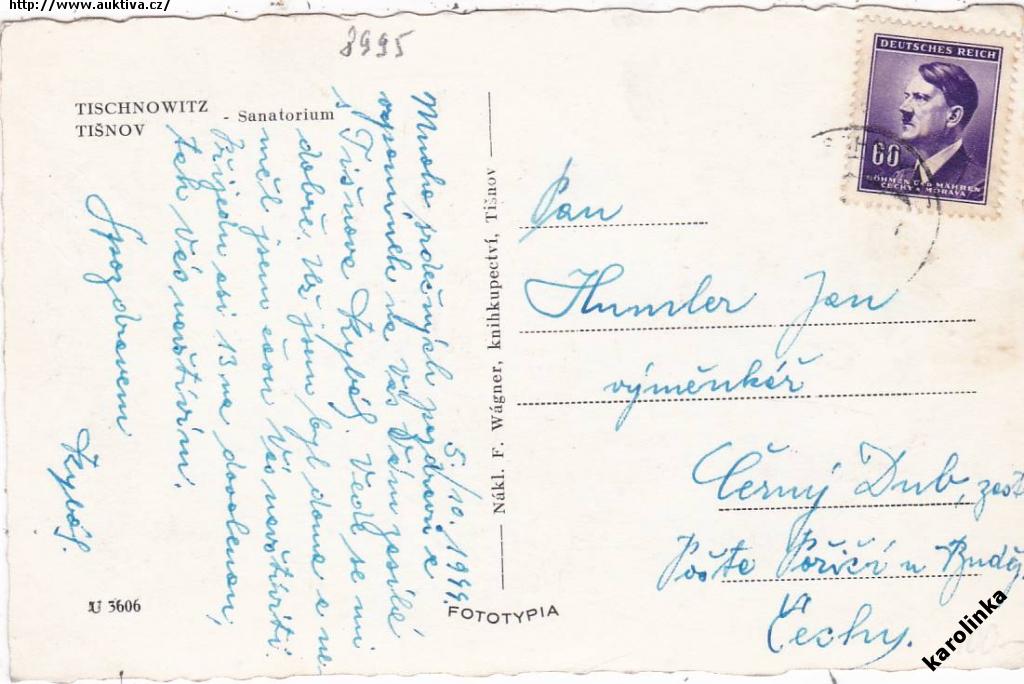 http://www.auktiva.cz/
8995
TISCHNOWITZ
TIŠNOV - Sanatorium
5./10. 1944.
Mnoho srdečných pozdravů a
vzpomínek na Vás Vám zasílá
z Tišnova Rybář. Vede se mi
dobře. Už jsem byl doma a ne
měl jsem čas Vás navštíviti.
Přijedu asi 13 na dovolenou,
tak Vás navštívím.
S pozdravem
Nákl. F. Wágner, knihkupectví, Tišnov
FOTOTYPIA
U 3606
DEUTSCHES REICH
60
BÖHMEN UND MÄHREN
ČECHY A MORAVA
Pan
Humler Jan
výměnkář
Černý Dub, zast
Pošta Poříčí u Buděj
Čechy.
karolinka